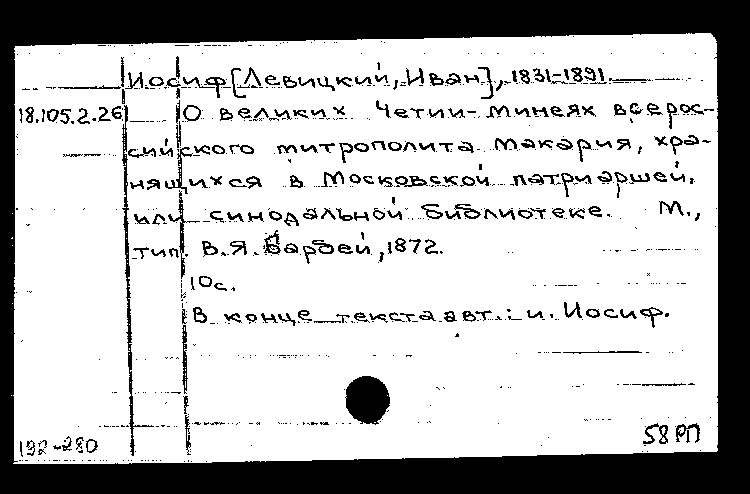 Иосиф [Левицкий, Иван], 1831-1891.
18.105.2.26 О великих Четии-Минеях всерос-
сийского митрополита Макария, хра-
нящихся в Московской патриаршей,
или синодальной библиотеке. М.,
тип. В.Я. Барбей, 1872.
10с.
В конце текста авт.: и. Иосиф.
192-280
58 РП